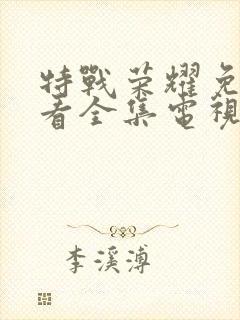 特戰荣耀免
看全集電視
李溪溥